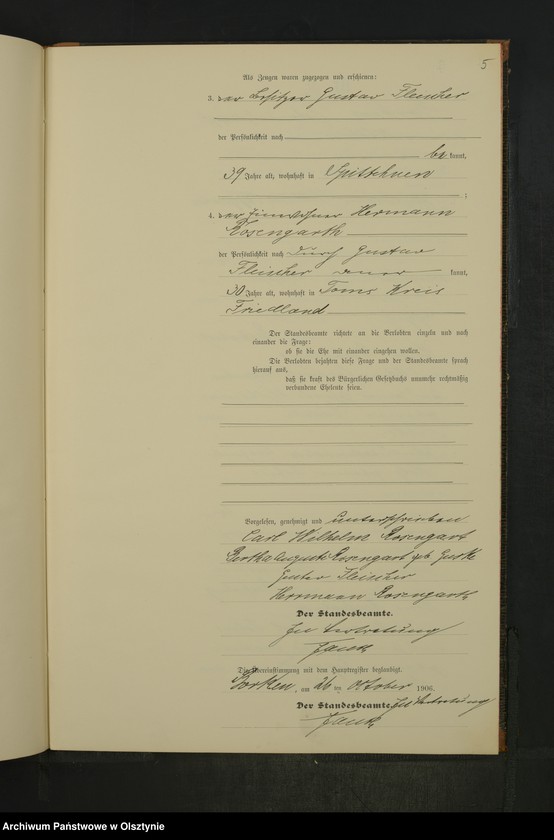 5
Als Zeugen waren zugezogen und erschienen:
3. der Besitzer Gustav Fleischer
der Persönlichkeit nach
be kannt,
39 Jahre alt, wohnhaft in Spittehnen
;
4. der Einwohner Hermann
Rosengarth
der Persönlichkeit nach durch Gustav
Fleischer kannt,
30 Jahre alt, wohnhaft in Toms Kreis
Friedland
Der Standesbeamte richtete an die Verlobten einzeln und nach
einander die Frage:
ob sie die Ehe mit einander eingehen wollen.
Die Verlobten bejahten diese Frage und der Standesbeamte sprach
hierauf aus,
daß sie kraft des Bürgerlichen Gesetzbuchs nunmehr rechtmäßig
verbundene Eheleute seien.
Vorgelesen, genehmigt und unterschrieben
Carl Wilhelm Rosengart
Bertha Auguste Rosengart geb.
Gustav Fleischer
Herrmann Rosengarth
Der Standesbeamte.
In Vertretung
Die Übereinstimmung mit dem Hauptregister beglaubigt.
am 26 ten Oktober 1906.
Der Standesbeamte. In Vertretung
Archiwum Państwowe w Olsztynie